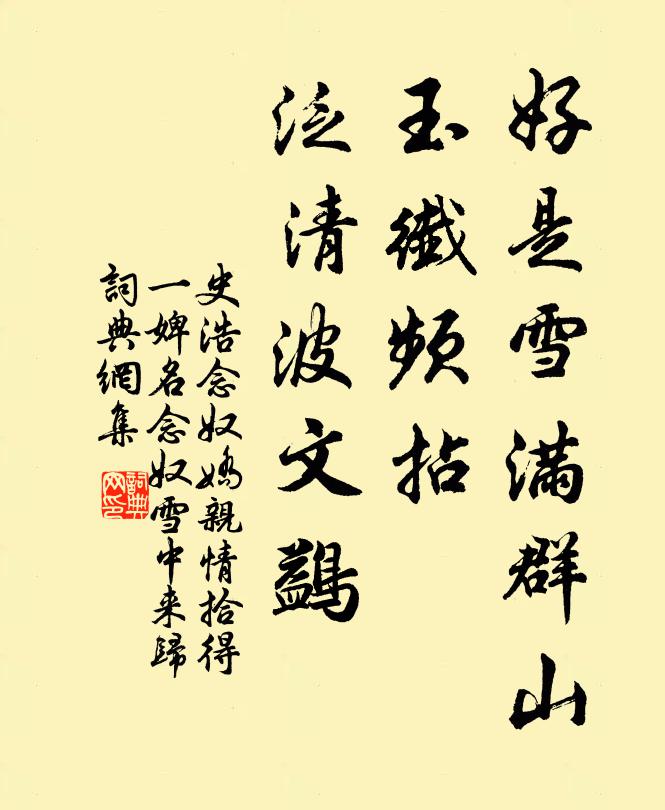 好是雪满群山
玉纖頻拈
泛清波文鷁
史浩念奴嬌親情拾得
一婢名念奴雪中来歸
詞典網集
詞典
网印